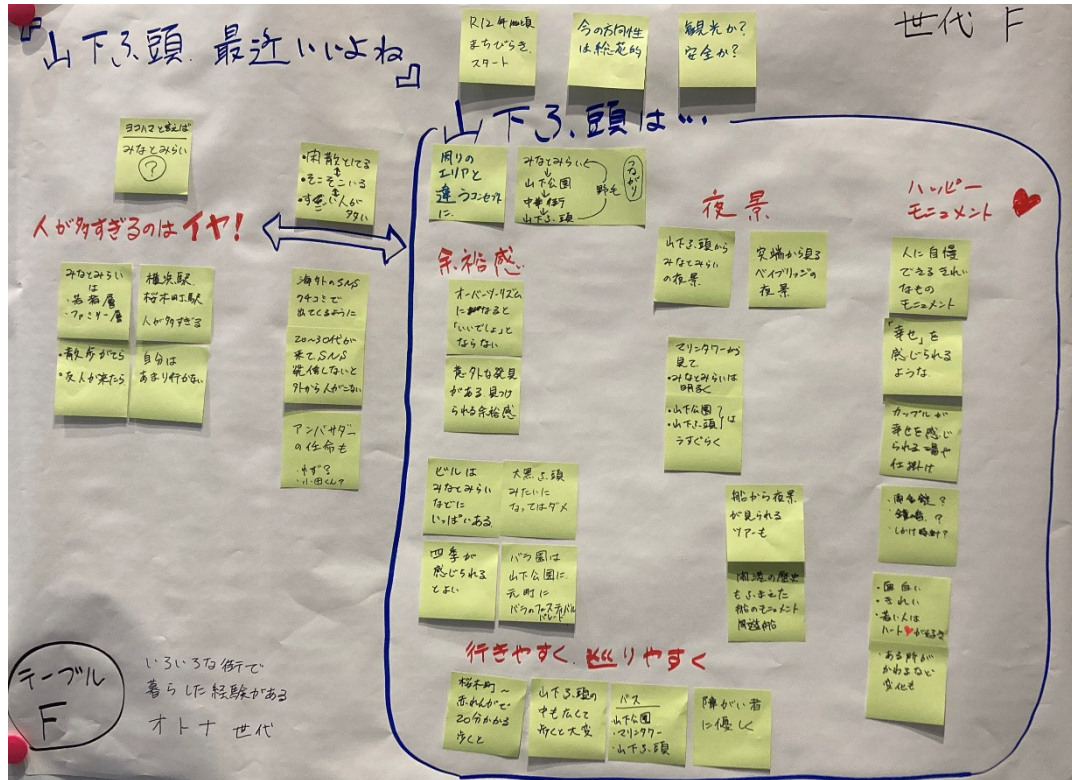 『山下ふ頭 最近いいよね』
世代 F
まちびらき
スタート
今の方向性
は総花的
観光か?
安全か?
ヨコハマと言えば
みなとみらい
?
・閑散としてる
・そこそこいる
人が
多い
人が多すぎるのはイヤ!
みなとみらい
は
・若者層
・ファミリー層
横浜駅
桜木町駅
人が多すぎる
・散歩がてら
・友人が来たら
自分は
あまり行かない
海外のSNS
クチコミで
出てくるように
20~30代が
来て、SNS
発信しないと
外から人がこない
アンバサダー
の任命も
・ゆず?
・小田くん?
山下ふ頭は…
周りの
エリアと
違うコンセプト
に
みなとみらい
↓
山下公園
↓
中華街
↓
山下ふ頭
野毛
つながり
余裕感
オーバーツーリズム
になると
「いいでしょ」と
ならない
意外な発見
がある、見つけ
られる余裕感
ビルは
みなとみらい
などに
いっぱいある
大黒ふ頭
みたいに
なってはダメ
四季が
感じられる
とよい
バラ園は
山下公園に
元町に
バラのフェスティバル
パレード
夜景
山下ふ頭から
みなとみらい
の夜景
突端から見る
ベイブリッジの
夜景
マリンタワーから
見て
・みなとみらいは
明るく
・山下公園
・山下ふ頭
は
うすぐらく
船から夜景
が見られる
ツアーも
開港の歴史
もふまえた
船のモニュメント
ハッピー
モニュメント ♥
人に自慢
できるきれい
なもの
モニュメント
「幸せ」を
感じられる
ような
カップルが
幸せを感じ
られる場や
仕掛け
・しかけ時計?
・面白い
・きれい
・若い人は
ハート♥が好き
・ある時が
かわるなど
変化も
行きやすく、巡りやすく
桜木町~
赤れんがで
20分かかる
歩くと
山下ふ頭の
中も広くて
歩くと大変
バス
山下公園
・マリンタワー
・山下ふ頭
障がい者
に優しく
テーブル
F
いろいろな街で
暮らした経験がある
オトナ世代